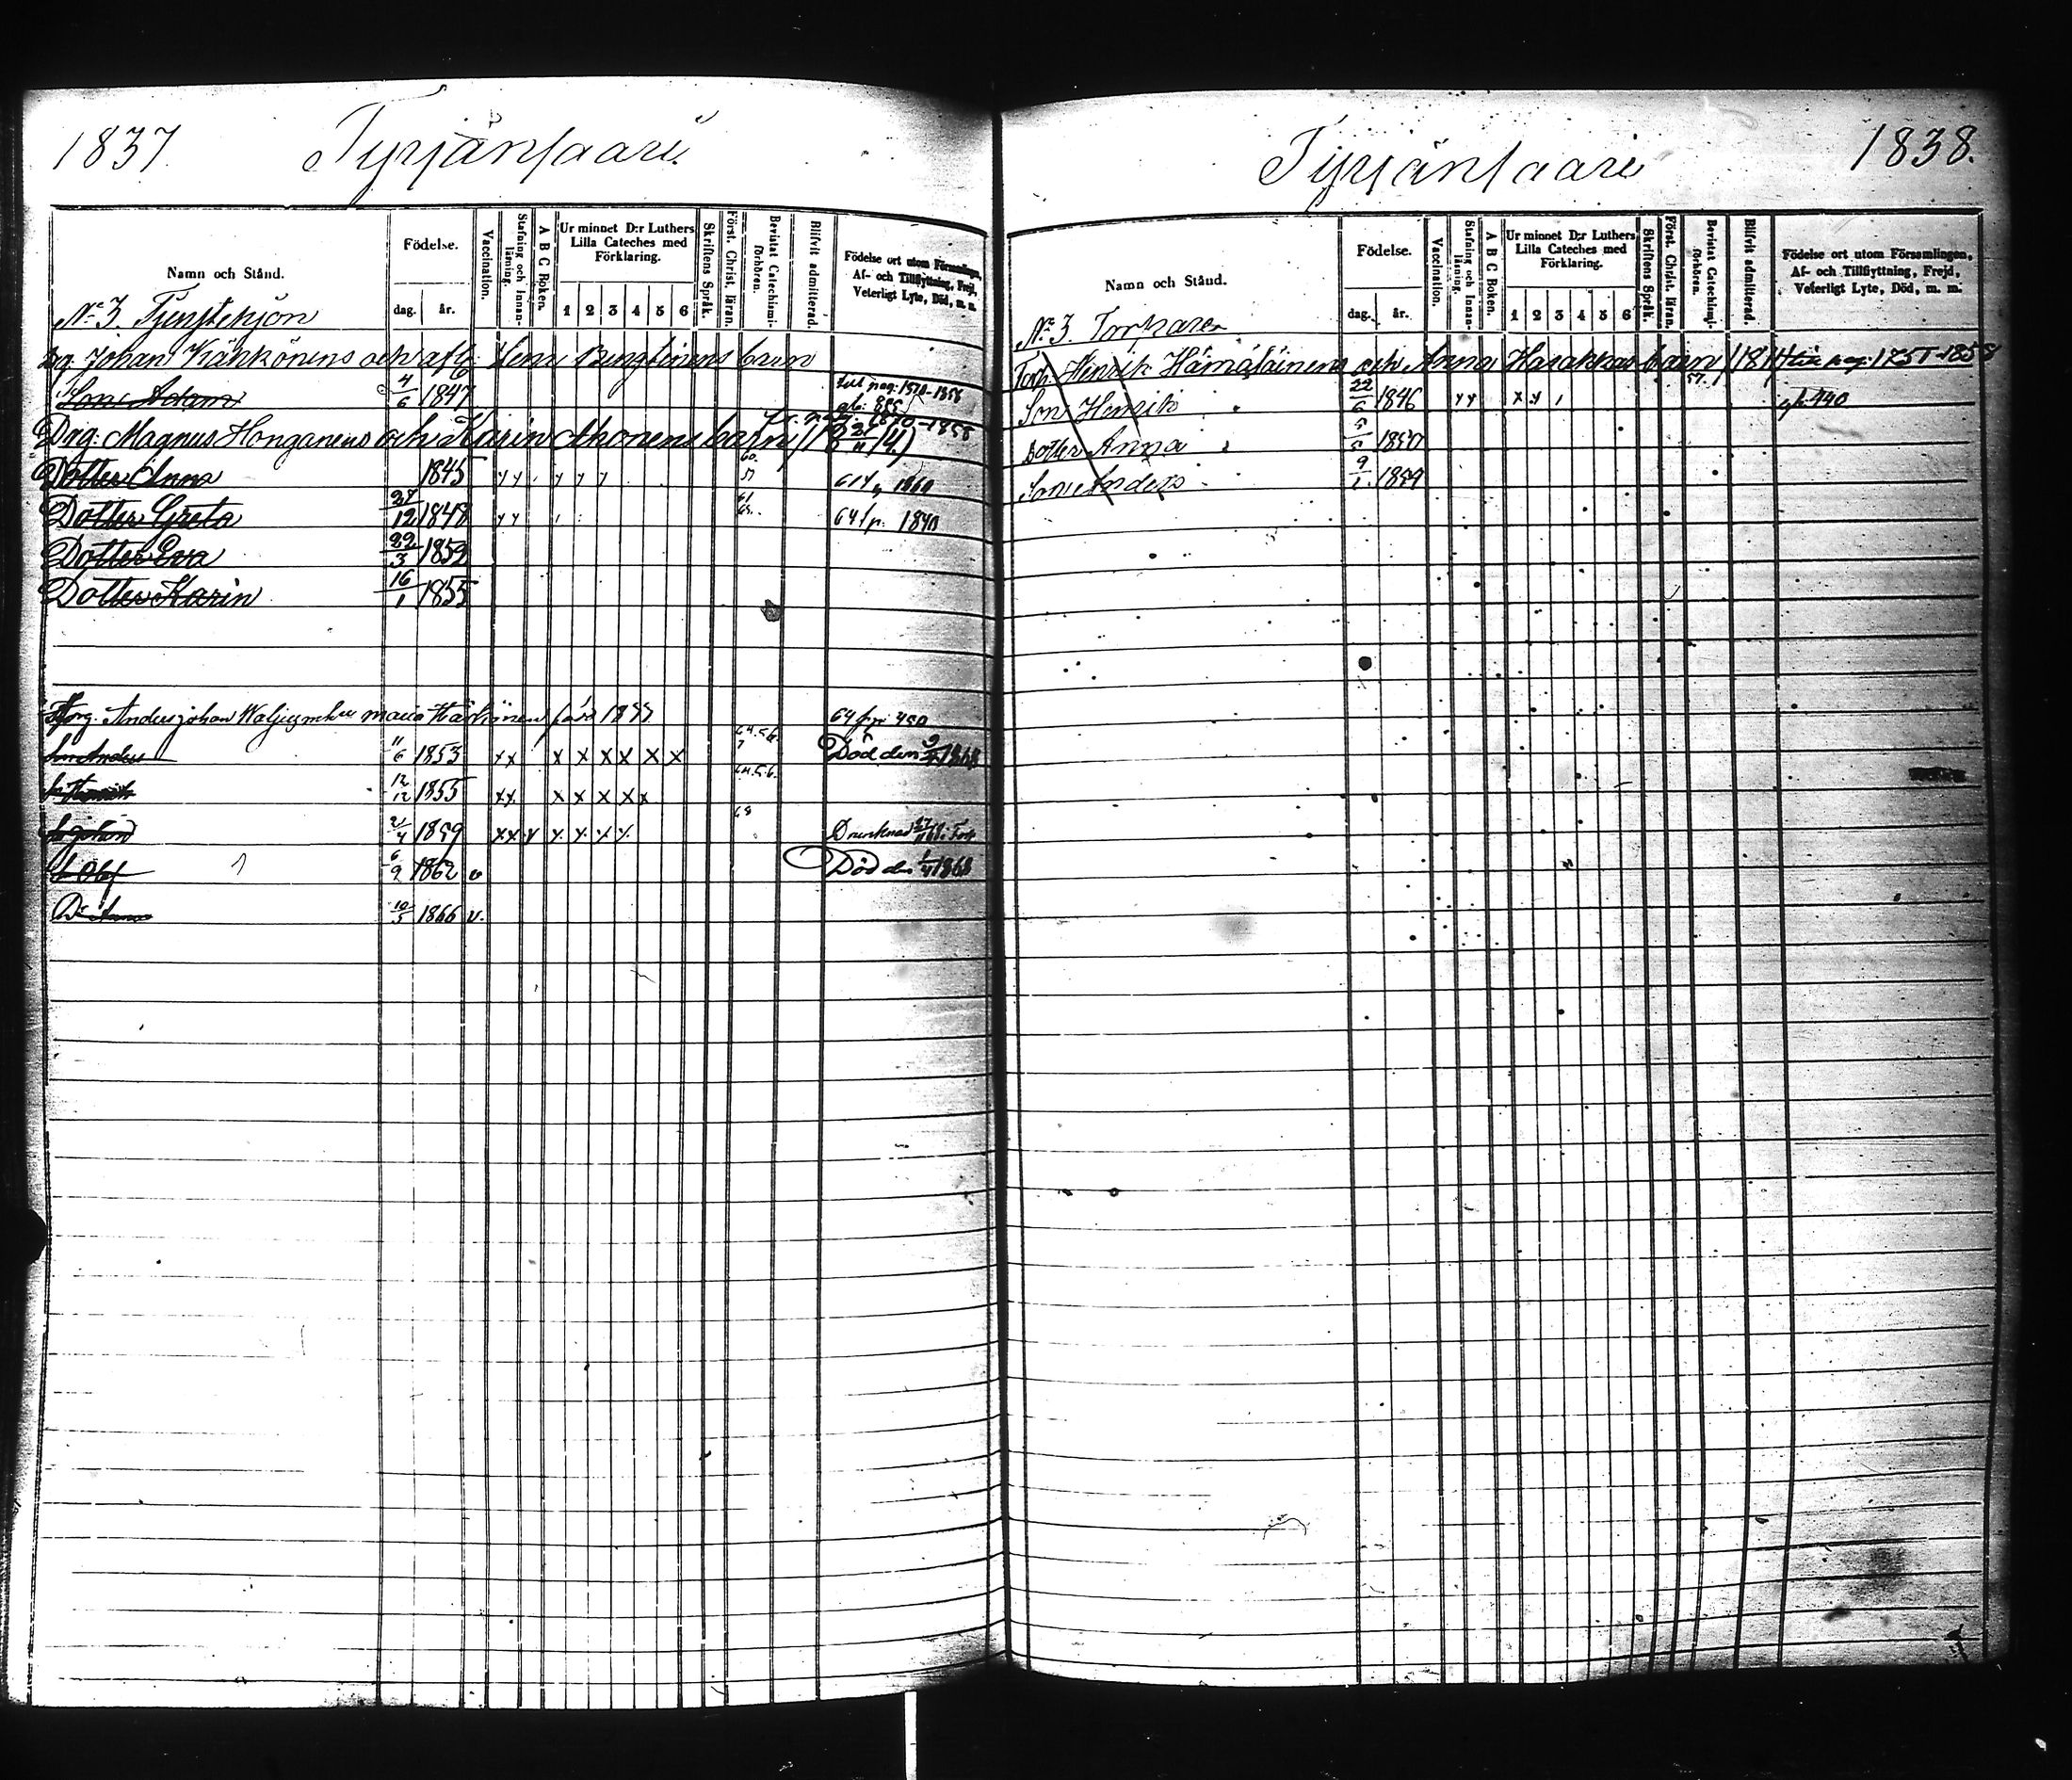 1837 Tyrjänsaari.
Namn och Stånd.
Födelse.
dag. år.
Vaccination.
Stafning och Innanläsning.
A B C Boken.
Ur minnet D:r Luthers Lilla Cateches med Förklaring.
1 2 3 4 5 6
Skriftens Språk.
Först. Christ. läran.
Bevistat Catechismiförhören.
Blifvit admitterad.
Födelse ort utom Församlingen, Af- och Tillflyttning, Frejd, Veterligt Lyte, Död, m. m.
No 3. Tjenstehjon
Drg. Johan Kähkönens och afl. barn
Son Adam 4/6 1847
Drg. Magnus Honganens och Karin Ahonens barn
Dotter Anna 1845 y y y y y 60. 1860
Dotter Greta 27/12 1848 y y 61 64 fr. 1840
Dotter Eva 22/3 1852
Dotter Karin 16/1 1855
Anders Johan maria Härkönens 64 fr. 450
Son Anders 11/6 1853 x x x x x x x x 64.5.6. 7 Död den 1868
12/12 1855 x x x x x x x 64.5.6.
S. Johan 21/4 1859 x x y y y y y 68 Drunknad
S. Olof 6/9 1862 v Död den 1868
D. Anna 10/5 1866 v.
Tyrjänsaari 1838.
Namn och Stånd.
Födelse.
dag. år.
Vaccination.
Stafning och Innanläsning.
A B C Boken.
Ur minnet D:r Luthers Lilla Cateches med Förklaring.
1 2 3 4 5 6
Skriftens Språk.
Först. Christ. läran.
Bevistat Catechismiförhören.
Blifvit admitterad.
Födelse ort utom Församlingen, Af- och Tillflyttning, Frejd, Veterligt Lyte, Död, m. m.
No 3. Torpare
Torp. Henrik Hämäläinens och Anna Harakkas barn
Son Henrik 22/6 1846 y y x y 57.
Dotter Anna 5/5 1850
Son Anders 9/1 1859